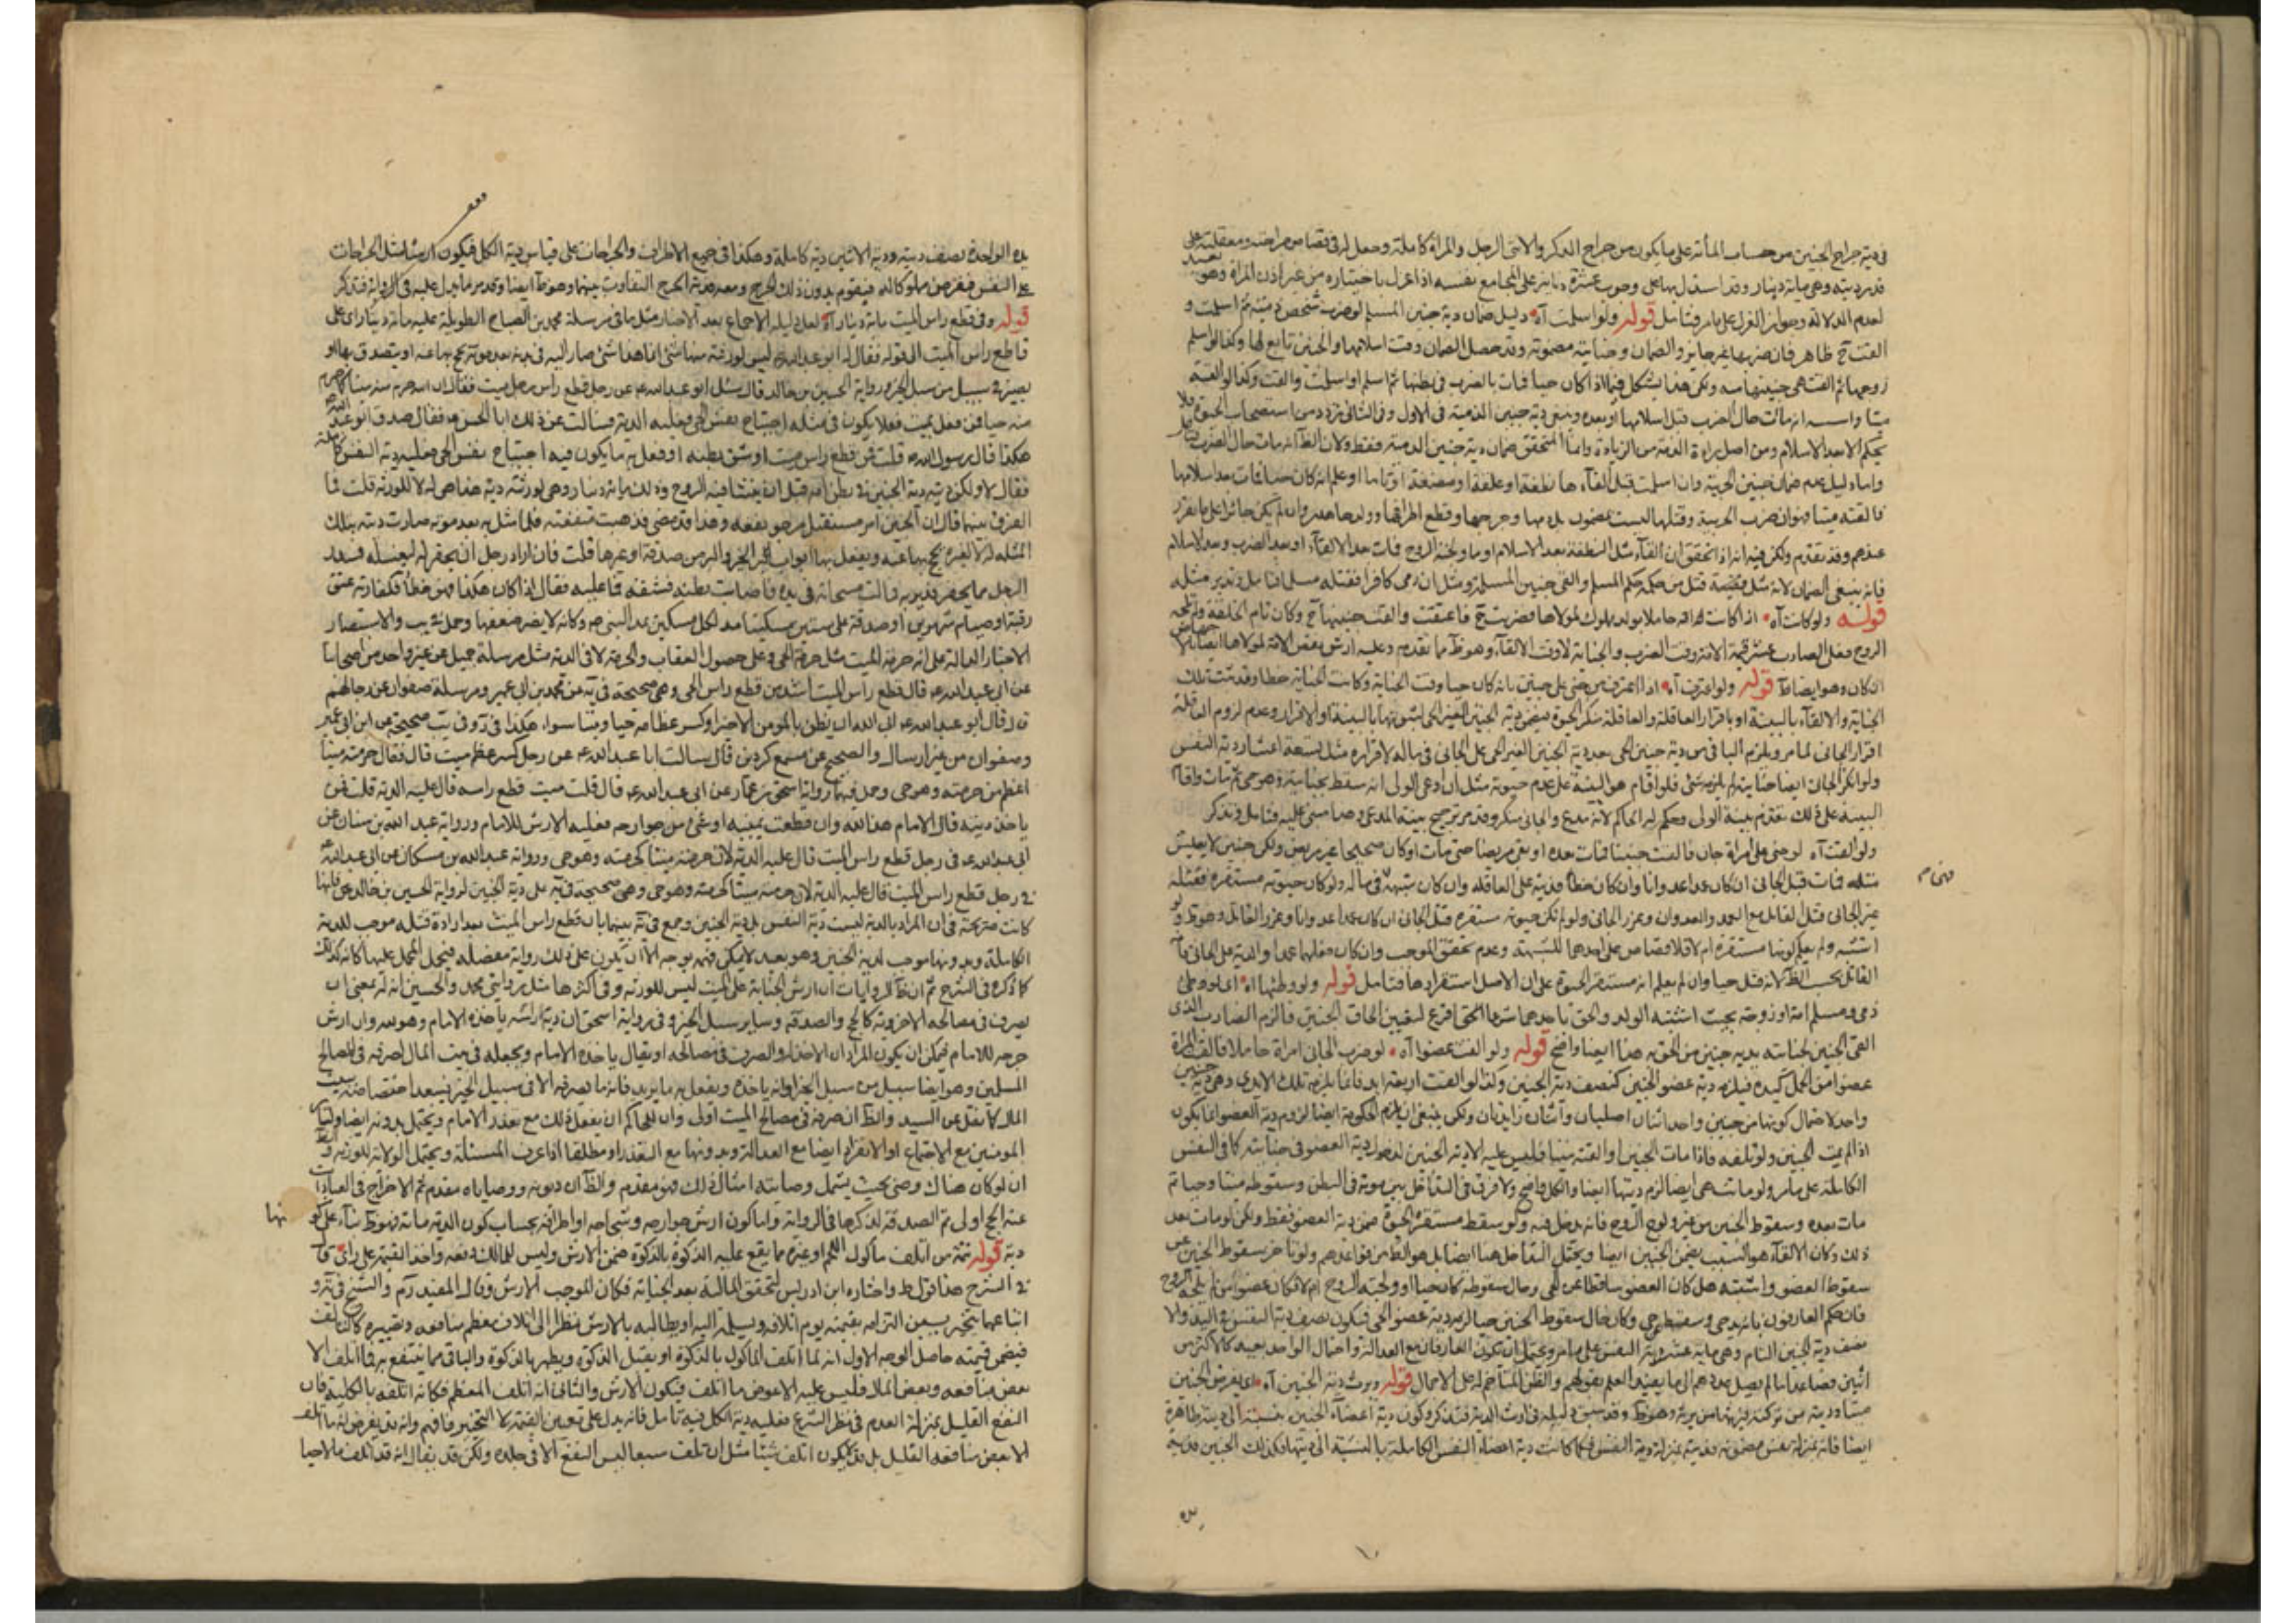 في دية جراح الجنين من حساب المأة على ما يكون من جراح الذكر والانثى الرجل والمرأة كاملة وجعل له في قصاص جراحته ومعقلته على
قدر ديته وهي مائة دينار وقد استدل بها على وجوب عشرة دنانير على المجامع نفسه اذا عزل باختياره من غير اذن المرأة وهو بعيد
لعدم الدلالة وجواز العزل على ما مر فتامل قوله ولو اسلمت آه دليل ضمان دية جنين المسلم لو ضرب شخص ذمية ثم اسلمت و
القت ح ظاهر فان ضربها غير جايز والضمان وجنايته مضمونة وقد حصل الضمان وقت اسلامها والجنين تابع لها وكذا لو اسلم
زوجها ثم القت هي جنينها منه ولكن هذا يشكل فيما اذا كان حيا فمات بالضرب في بطنها ثم اسلم او اسلمت والقت وكذا لو القته
ميتا واشتبه انه مات حال الضرب قبل اسلامها او بعده وينبغي دية جنين الذمية في الاول وفي الثاني تردد من استصحاب الحيوة فلا
يحكم الا بعد الاسلام ومن اصل براءة الذمة من الزيادة وانما المتحقق ضمان دية جنين الذمية فقط ولان الظ انه مات حال الضرب
واما دليل عدم ضمان جنين الحربية وان اسلمت قبل القاءها نطفة او علقة او مضغة او تاما او علم انه كان حيا فمات بعد اسلامها
فالقته ميتا فهو ان ضرب الحربية وقتلها ليست بمضمون بل دمها وجرحها وقطع اطرافها وولدها هدر وان لم يكن جائزا على ما تقرر
عندهم وقد تقدم ولكن فيه انه اذا تحقق ان القاء مثل النطفة بعد الاسلام او ما ولجته الروح فمات بعد الالقاء او بعد الضرب وبعد الاسلام
فانه ينبغي الضمان لانه مثل مضغة قبل من حكمه حكم المسلم والقى جنين المسلمة ومثل ان رمى كافرا فقتله مسلما فتامل وتدبر مثله
قوله ولو كانت آه اذا كانت امراة حاملا بولد مملوك لمولاها فضربت ح فاعتقت والقت جنينها ح وكان تام الخلقة ولم تلجه
الروح فعلى الضارب عشر قيمة الامة وقت الضرب والجناية لا وقت الالقاء وهو ظ مما تقدم وعليه ارش بعض الامة لمولاها ايضا
ان كان وهو ايضا ظ قوله ولو اعترف آه اذا اعترف من جنى على جنين بانه كان حيا وقت الجناية وكانت الجناية خطأ وقد ثبتت تلك
الجناية والالقاء بالبينة او باقرار العاقلة والعاقلة تنكر الحيوة فيضمن دية الجنين الغير الحي لثبوتها بالبينة او الاقرار وعدم لزوم العاقلة
اقرار الجاني لما مر ويلزم الباقي من دية جنين الحي بعد دية الجنين الغير الحي على الجاني في ماله لاقراره مثل تسعة اعشار دية النفس
ولو انكر الجان ايضا جنايته لم يلزمه شئ فلو اقام هو البينة على عدم حيوته مثل ان ادعى الولي انه سقط بجنايته وهو حي ثم مات واقام
البينة على ذلك تقدم بينة الولي وحكم له الحاكم لانه مدع والجاني منكر وقد مر ترجيح بينة المدعي وهنا مبني عليه فتامل وتذكر
ولو القت آه لو جنى على امرأة جان فالقت جنينا فمات بعده او بقي مريضا حتى مات او كان صحيحا غير مريض ولكن جنين لا يعيش
مثله فمات قتل الجاني ان كان عمدا عدوانا وان كان خطأ فديته على العاقلة وان كان شبهه ففي ماله ولو كان حيوته مستقرة فقتله
غير الجاني قتل القاتل مع العمد والعدوان وعزر الجاني ولو لم تكن حيوته مستقرة قتل الجاني ان كان عمدا عدوانا وعزر القاتل وهو ظ ولو
اشتبه ولم يعلم كونها مستقرة ام لا فلا قصاص على احدهما للشبهة وعدم تحقق الموجب وان كان فعلهما عمدا والدية على الجاني
القاتل بحسب الظ لانه قتل حيا وان لم يعلم انه مستقر الحيوة على ان الاصل استقرارها فتامل قوله ولو وطئها آه اي لو وطئ
ذمي ومسلم امة او زوجة بحيث اشتبه الولد والحق باحدهما شرعا الحق اقرع لتعيين الحاق الجنين فالزم الضارب الذي
القى الجنين لجنايته بدية جنين من الحق به هذا ايضا واضح قوله ولو القت عضوا آه لو ضرب الجاني امرأة حاملا فالقت المرأة
عضوا من الحمل كيده فيلزمه دية عضو الجنين كنصف دية الجنين وكذا لو القت اربعة ايد فانما يلزمه تلك الايدي وهي دية جنين
واحد لاحتمال كونها من جنين واحد اثنان اصليان واثنان زايدان ولكن ينبغي ان يلزم الحكومة ايضا لزوم دية العضو انما يكون
اذا لم يمت الجنين ولم تلقه فاذا مات الجنين او القته ميتا فليس عليه الا دية الجنين لدخول دية العضو في جنايته كما في النفس
الكاملة على ما مر ولو ماتت هي ايضا لزم ديتها ايضا والكل واضح ولا فرق في التداخل بين موته في البطن وسقوطه ميتا وحيا ثم
مات بعده وسقوط الجنين من غير ولوج الروح فانه يدخل فيه ولو سقط مستقر الحيوة ضمن دية العضو فقط ولكن لو مات بعد
ذلك وكان الالقاء هو السبب يضمن الجنين ايضا ويحتمل التداخل هنا ايضا بل هو الظ من قواعدهم ولو تاخر سقوط الجنين عن
سقوط العضو واشتبه هل كان العضو ساقطا عن الحي وحال سقوطه كان حيا او ولجته الروح ام لا فكان عضوا من لم يلجه الروح
فان حكم العارفون بانه يد حي وسقط حي وكان حال سقوط الجنين حيا لزمه دية عضو الحي فيكون نصف دية النفس في اليد والا
نصف دية الجنين التام وهي ماية عشر دية النفس على ما مر ويحتمل ان تكون العارفان مع العدالة واحتمال الواحد بعيد كالاكثر من
اثنين فصاعدا ما لم يصل عددهم الى ما يفيد العلم بقولهم والظن المتاخم له على الاحتمال قوله ويرث دية الجنين آه اي يفرض الجنين
ميتا ودية من تركته فيرثها من يرثه وهو ظ وقد سبق دليله في ارث الدية فتذكر وكون دية اعضاء الجنين بنسبته الى ديته ظاهرة
ايضا فانه بمنزلة نفس مضمونة فديته بمنزلة دية النفس فكما كانت دية اعضاء النفس الكاملة بالنسبة الى ديتها فكذلك الجنين فدية
يده
يده الواحدة نصف دية ودية الاثنين دية كاملة وهكذا في جميع الاطراف والجراحات على قياس دية الكل فيكون ارشا مثل الجراحات
على النفس فيفرض مملوكا له فيقوم بدون ذلك الجرح ومعه فدية الجرح التفاوت بينهما وهو ظ ايضا وقد مر ما يدل عليه في الرواية فتذكر
قوله وفي قطع راس الميت مائة دينار آه لعل دليله الاجماع بعد الاخبار مثل ما في مرسلة محمد بن الصباح الطويلة عليه مائة دينار اي على
قاطع راس الميت الى قوله فقال له ابو عبد الله ع ليس لورثته منها شئ انما هذا شئ صار اليه في بدنه بعد موته يحج بها عنه او يتصدق بها او
يصير في سبيل من سبل الخير ورواية الحسين بن خالد قال سئل ابو عبد الله ع عن رجل قطع راس رجل ميت فقال ان الله حرم منه ميتا كما حرم
منه حيا فمن فعل بميت فعلا يكون في مثله اجتياح نفس الحي فعليه الدية فسالت عن ذلك ابا الحسن ع فقال صدق ابو عبد الله ع
هكذا قال رسول الله ص قلت فمن قطع راس ميت او شق بطنه او فعل به ما يكون فيه اجتياح نفس الحي فعليه دية النفس كاملة
فقال لا ولكن ديته دية الجنين في بطن امه قبل ان ينشأ فيه الروح وذلك مائة دينار وهي لورثته ودية هذا هي له لا للورثة قلت فما
الفرق بينهما قال ان الجنين امر مستقبل مرجو نفعه وهذا قد مضى فذهبت منفعته فلما مثل به بعد موته صارت ديته بتلك
المثلة له لا لغيره يحج بها عنه ويفعل بها ابواب الخير والبر من صدقة او غيرها قلت فان اراد رجل ان يحفر له ليغسله فسدر
الرجل مما يحفر فدير به فمالت مسحاته في يده فاصابت بطنه فشقه فما عليه فقال اذا كان هكذا فهو خطأ فكفارته عتق
رقبة او صيام شهرين او صدقة على ستين مسكينا مد لكل مسكين بمد النبي ص وكانه لا يضر ضعفها وحمل في يب والاستبصار
الاخبار الدالة على انه حرمة الميت مثل حرمة الحي وعلى حصول العقاب والحرمة لا في الدية مثل مرسلة جميل عن غير واحد من اصحابنا
عن ابي عبد الله ع قال قطع راس الميت اشد من قطع راس الحي وهي صحيحة في يه عن محمد بن ابي عمير ومرسلة صفوان عن رجالهم
قال قال ابو عبد الله ع ابى الله ان يظن بالمؤمن الا خيرا وكسر عظامه حيا وميتا سواء هكذا في رو في يب صحيحة عن ابن ابي عمير
وصفوان من غير ارسال والصحيح عن مسمع كردين قال سالت ابا عبد الله ع عن رجل كسر عظم ميت قال فقال حرمته ميتا
اعظم من حرمته وهو حي وحمل فيهما رواية اسحق بن عمار عن ابي عبد الله ع قال قلت ميت قطع راسه قال عليه الدية قلت فمن
ياخذ ديته قال الامام هذا لله وان قطعت يمينه او شئ من جوارحه فعليه الارش للامام ورواية عبد الله بن سنان عن
ابي عبد الله ع في رجل قطع راس الميت قال عليه الدية لان حرمته ميتا كحرمته وهو حي ورواية عبد الله بن مسكان عن ابي عبد الله ع
في رجل قطع راس الميت قال عليه الدية لان حرمته ميتا كحرمته وهو حي وهي صحيحة في يه على دية الجنين لرواية الحسين بن خالد فانها
كانت صريحة في ان المراد بالدية ليست دية النفس بل دية الجنين وجمع في يه بينهما بان قطع راس الميت بعد ارادة قتله موجب للدية
الكاملة وبدونها موجب لدية الجنين وهو بعيد لا يمكن فهم بوجه الا ان يكون على ذلك رواية مفصلة فيحمل المجمل عليها كانه كذلك
كما ذكره في الشرح ثم ان ظ الروايات ان ارش الجناية على الميت ليس للورثة وفي اكثرها مثل روايتي محمد والحسين انه له بمعنى ان
يصرف في مصالحه الاخروية كالحج والصدقة وساير سبل الخير وفي رواية اسحق ان دية راسه ياخذه الامام وهو لله وان ارش
جرحه للامام فيمكن ان يكون المراد ان الاخذ له والصرف في مصالحه او يقال ياخذه الامام ويجعله في بيت المال لصرفه في المصالح
المسلمين وهو ايضا سبيل من سبل الخير او انه ياخذه ويفعل به ما يريد فانه ما يصرفه الا في سبيل الخير
المال كما نقل عن السيد والظ ان صرفه في مصالح الميت اولى وان للحاكم ان يفعل ذلك مع تعذر الامام ويحتمل بدونه ايضا ولسائر
المؤمنين مع الاجتماع او الانفراد ايضا مع العدالة وبدونها مع التعذر او مطلقا اذا عرف المسئلة ويحتمل الولاية للورثة والظ
ان لو كان هناك وصي بحيث يشمل وصايته امثال ذلك فهو مقدم والظ ان ديونه ووصاياه مقدم ثم الاخراج في العبادات
عنه الحج اولى ثم الصدقة لذكرها في الرواية واما كون ارش جوارحه وشجاجه او اطرافه بحساب كون الدية مائة فهو ظ بناء على كونها
دية قوله تتمة من اتلف ماكول اللحم او غيره مما يقع عليه الذكوة بالذكوة ضمن الارش وليس للمالك دفعه واخذ القيمة على راى قال
في الشرح هذا قول ط واختاره ابن ادريس لتحقق المالية بعد الجناية فكان الموجب الارش وقال المفيد ره والشيخ في ية و
اتباعهما يتخير بين التزامه بقيمته يوم اتلافه ويسلمه اليه او يطالبه بالارش نظرا الى اتلاف معظم منافعه وتصييره كالتالف
فيضمن قيمته حاصل الوجه الاول انه لما اتلف الماكول بالذكوة او يقبل الذكوة ويطهر بالذكوة والباقي مما ينتفع به فما اتلف الا
بعض منافعه وبعض المال فليس عليه الا عوض ما اتلف فيكون الارش والثاني انه اتلف المعظم فكانه اتلفه بالكلية فان
النفع القليل بمنزلة العدم في نظر الشرع فعليه دية الكل فيه تامل فانه يدل على تعيين القيمة لا التخيير فافهم وانه قد يفرض انه ما اتلف
الا بعض منافعه القليل بل قد لا يكون اتلف شيئا مثل ان تلف سبعا ليس النفع الا في جلده ولكن قد يقال انه قد اتلف مال احيا